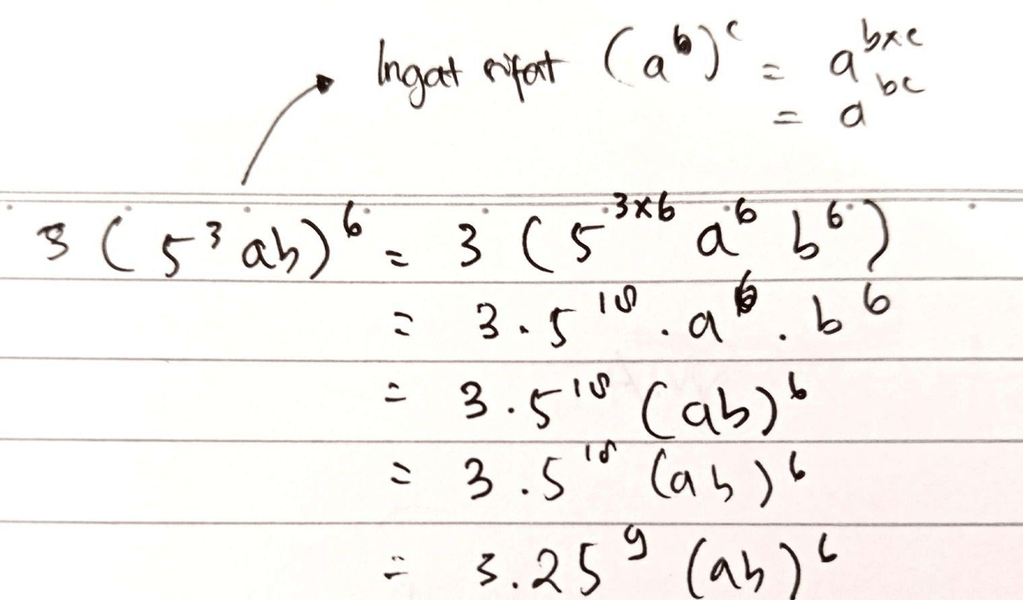 Ingat sifat (a^b)^c = a^{b×c}
= a^{bc}
3 (5³ ab)⁶ = 3 (5^{3×6} a⁶ b⁶)
= 3 . 5¹⁸ . a⁶ . b⁶
= 3 . 5¹⁸ (ab)⁶
= 3 . 5¹⁸ (ab)⁶
= 3 . 25⁹ (ab)⁶